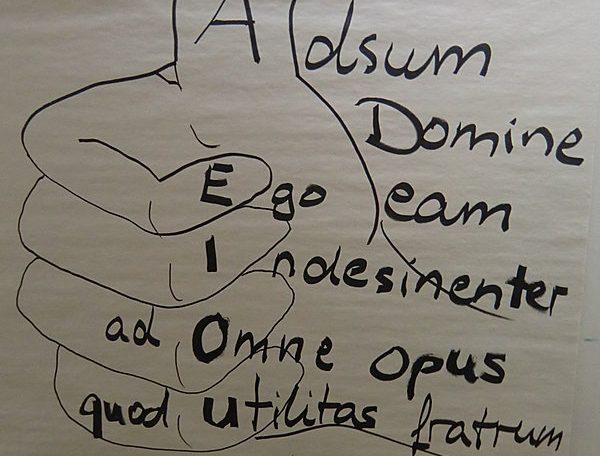 Adsum
Domine
Ego eam
Indesinenter
ad Omne opus
quod utilitas fratrum